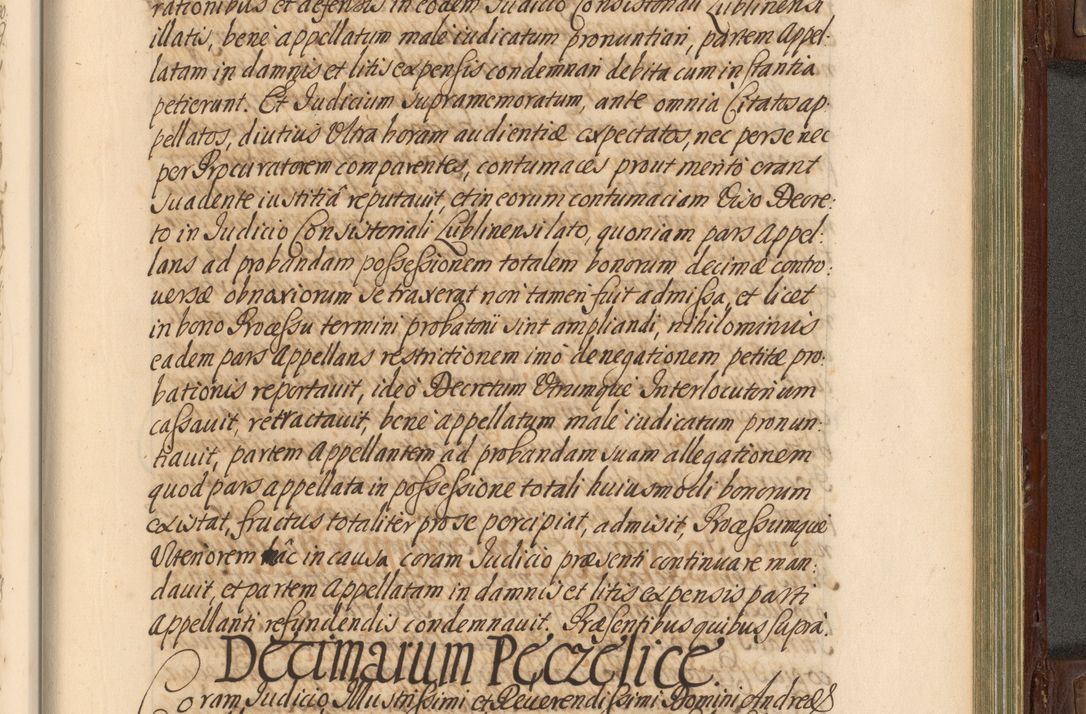 rationibus et defensis in eodem Judicio Consistoriali Lublinensi
illatis, bene appellatum male iudicatum pronuntiari, partem Appel-
latam in damnis et litis expensis condemnari debita cum instantia
petierunt. Et Judicium supramemoratum, ante omnia Citatos ap-
pellatos, diutius Vltra horam audientiæ expectatos, nec per se nec
per Procuratorem comparentes, contumaces prout merito erant
suadente iustitiâ reputauit, et in eorum contumaciam Viso Decre:
to in Judicio Consistoriali Lublinensi lato, quoniam pars Appel:
lans ad probandam possessionem totalem bonorum decimæ contro:
uersæ obnoxiorum se traxerat non tamen fuit admissa, et licet
in bono Processu termini probatorii sint ampliandi, nihilominus
eadem pars Appellans restrictionem imo denegationem, petitæ pro:
bationis reportauit, ideo Decretum Vtrumque Interlocutorium
cassauit, retractauit, bene appellatum male iudicatum pronun:
tiauit, partem Appellantem ad probandam suam allegationem
quod pars appellata in possessione totali huiusmodi bonorum
existat, fructus totaliter pro se percipiat, admisit, Processumque
Vlteriorem hâc in causa coram Judicio præsenti continuare man:
dauit, et partem Appellatam in damnis et litis expensis parti
Appellanti refundendis condemnauit. Præsentibus quibus supra.
Decimarum Peczelice.
Coram Judicio Illustrissimi et Reuerendissimi Domini Andreæ